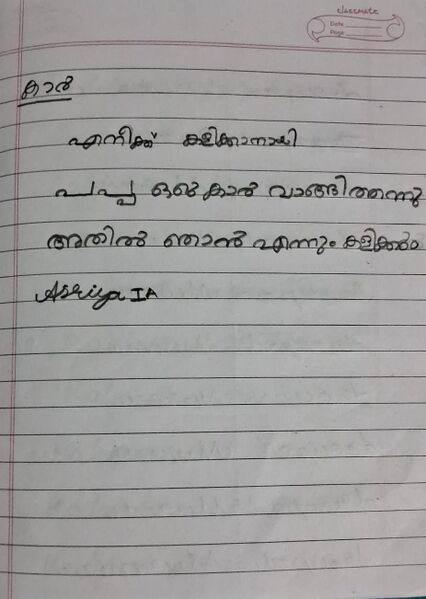 classmate
Date
Page
കാർ
എനിക്ക് കളിക്കാനായി
പപ്പ ഒരു കാർ വാങ്ങിത്തന്നു
അതിൽ ഞാൻ എന്നും കളിക്കും
Asriya IA